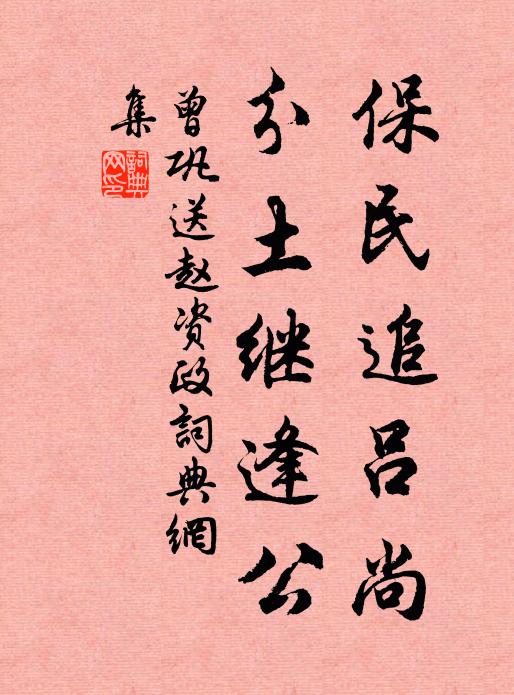 保民追吕尚
分土继逢公
曾巩送赵资政詞典網
集
詞典
网印